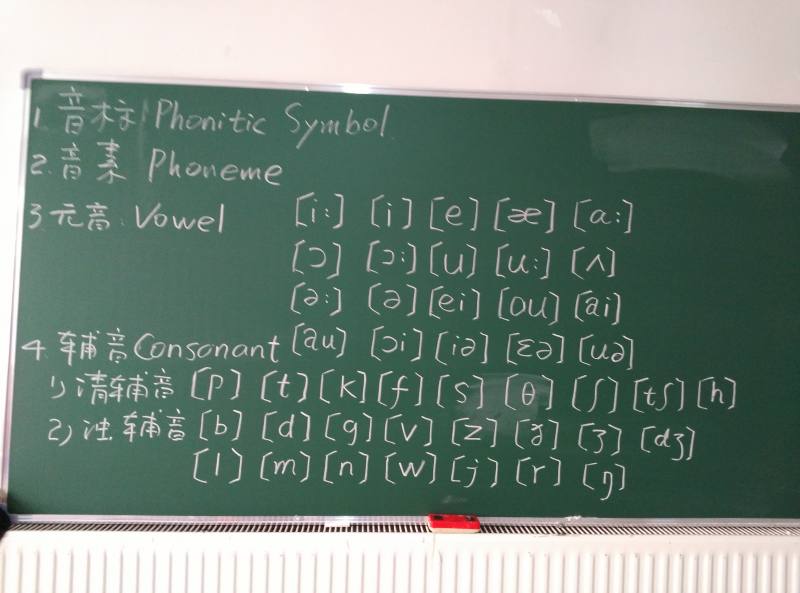 1. 音标 Phonitic Symbol
2. 音素 Phoneme
3 元音: Vowel [i:] [i] [e] [æ] [a:]
[ɔ] [ɔ:] [u] [u:] [ʌ]
[ə:] [ə] [ei] [ou] [ai]
[au] [ɔi] [iə] [ɛə] [uə]
4. 辅音 Consonant
1) 清辅音 [p] [t] [k] [f] [s] [θ] [ʃ] [tʃ] [h]
2) 浊辅音 [b] [d] [g] [v] [z] [ʒ] [dʒ]
[l] [m] [n] [w] [j] [r] [ŋ]